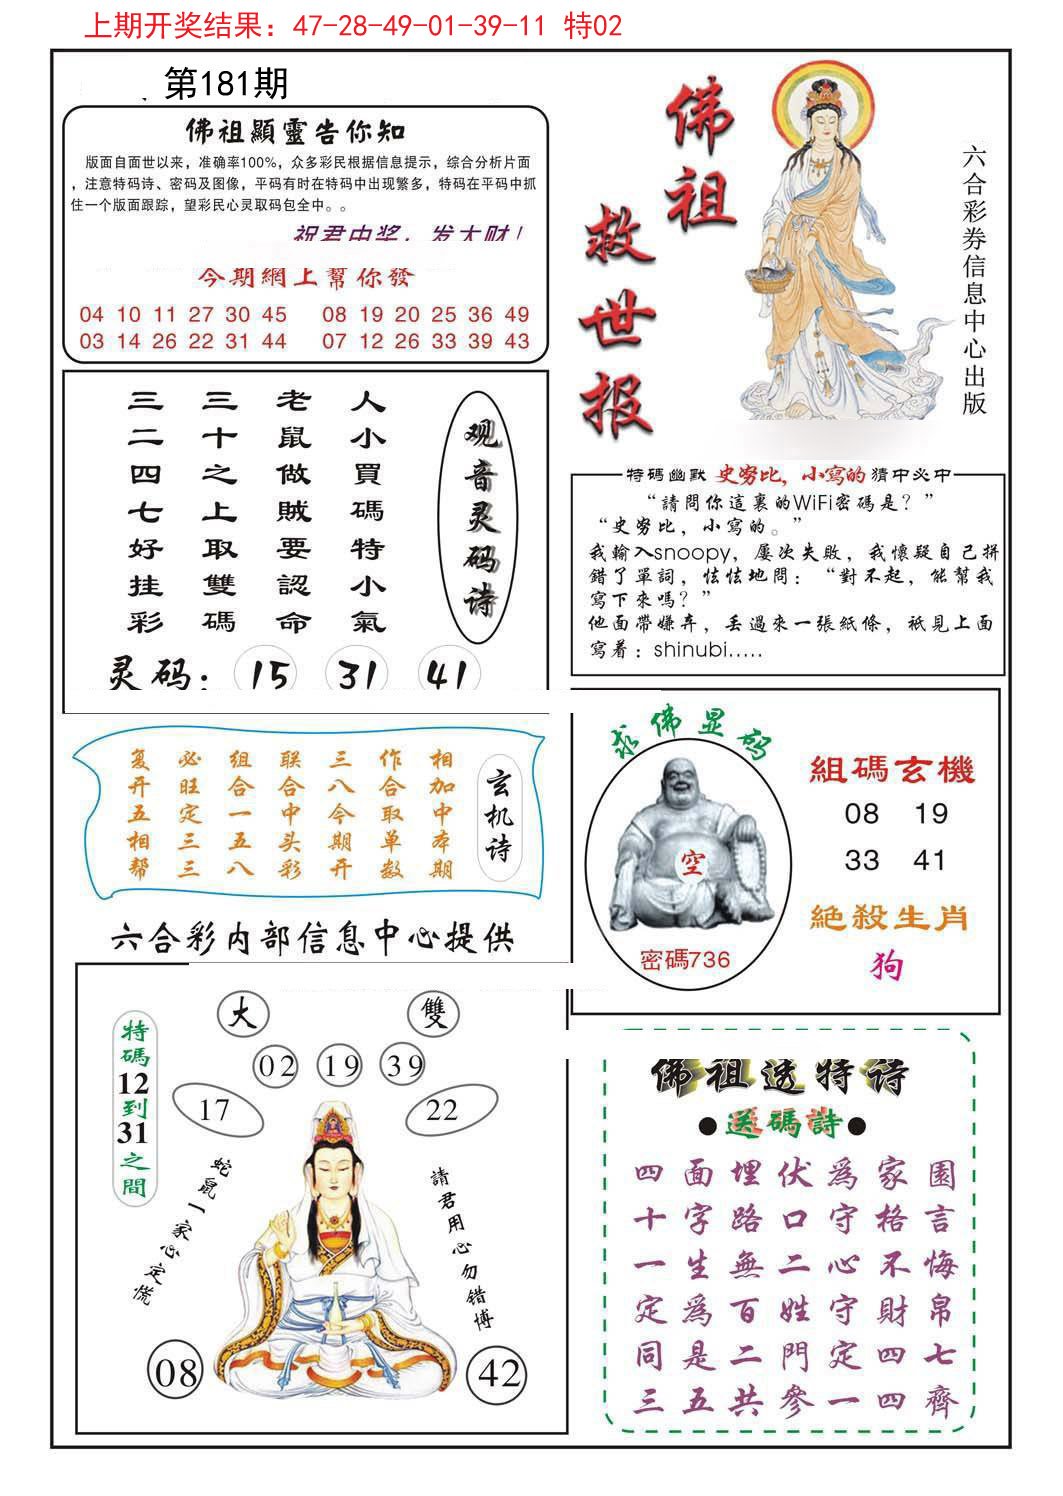 上期开奖结果：47-28-49-01-39-11 特02
第181期
佛祖顯靈告你知
版面自面世以来，准确率100%，众多彩民根据信息提示，综合分析片面
，注意特码诗、密码及图像，平码有时在特码中出现繁多，特码在平码中抓
住一个版面跟踪，望彩民心灵取码包全中。。
祝君中奖，发大财！
今期網上幫你發
04 10 11 27 30 45 08 19 20 25 36 49
03 14 26 22 31 44 07 12 26 33 39 43
佛祖
救世报
六合彩券信息中心出版
观音灵码诗
人小買碼特小氣
老鼠做賊要認命
三十之上取雙碼
三二四七好挂彩
灵码：15 31 41
特碼幽默 史努比，小寫的 猜中必中
“請問你這裏的WiFi密碼是？”
“史努比，小寫的。”
我輸入snoopy，屢次失敗，我懷疑自己拼
錯了單詞，怯怯地問：“對不起，能幫我
寫下來嗎？”
他面带嫌弃，丢過來一張紙條，祇見上面
寫着：shinubi.....
玄机诗
相加中本期
作合取单数
三八今期开
联合中头彩
组合一五八
必旺定三三
复开五相帮
求佛显码
空
密碼736
組碼玄機
08 19
33 41
絕殺生肖
狗
六合彩内部信息中心提供
大 雙
02 19 39
17 22
特碼12到31之間
蛇鼠一家心定慌
請君用心勿错博
08 42
佛祖透特诗
●送碼詩●
四面埋伏爲家園
十字路口守格言
一生無二心不悔
定爲百姓守財帛
同是二門定四七
三五共參一四齊